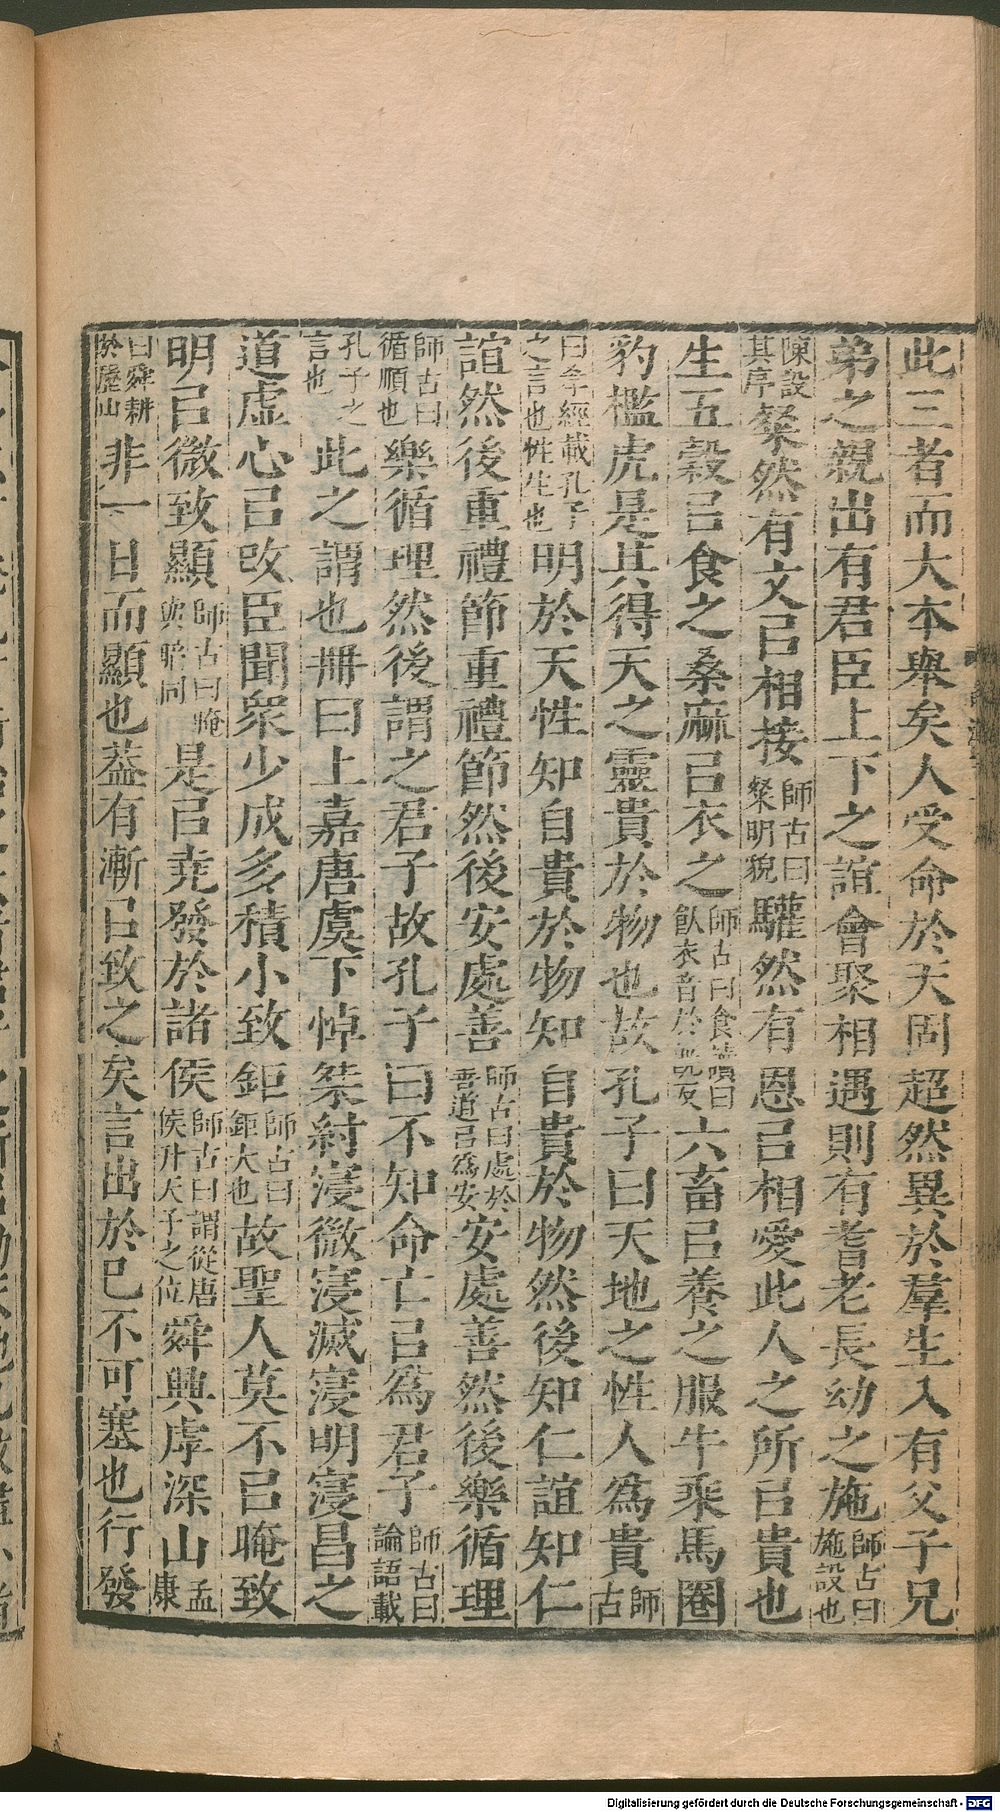 此三者而大本舉矣人受命於天固超然異於羣生入有父子兄
弟之親出有君臣上下之誼會聚相遇則有耆老長幼之施師古曰施設也
陳設其序粲然有文㠯相接師古曰粲明貌驩然有恩㠯相愛此人之所㠯貴也
生五穀㠯食之桑麻㠯衣之師古曰食讀曰飤衣音於既反六畜㠯養之服牛乘馬圈
豹檻虎是其得天之靈貴於物也故孔子曰天地之性人爲貴師古
曰孝經載孔子之言也性生也明於天性知自貴於物知自貴於物然後知仁誼知仁
誼然後重禮節重禮節然後安處善師古曰處於善道㠯爲安安處善然後樂循理
師古曰循順也樂循理然後謂之君子故孔子曰不知命亡㠯爲君子師古曰論語載
孔子之言也此之謂也冊曰上嘉唐虞下悼桀紂寖微寖滅寖明寖昌之
道虛心㠯改臣聞衆少成多積小致鉅師古曰鉅大也故聖人莫不㠯晻致
明㠯微致顯師古曰晻與暗同是㠯堯發於諸侯師古曰謂從唐侯升天子之位舜興虖深山孟康
曰舜耕於歷山非一日而顯也葢有漸㠯致之矣言出於已不可塞也行發
Digitalisierung gefördert durch die Deutsche Forschungsgemeinschaft - DFG